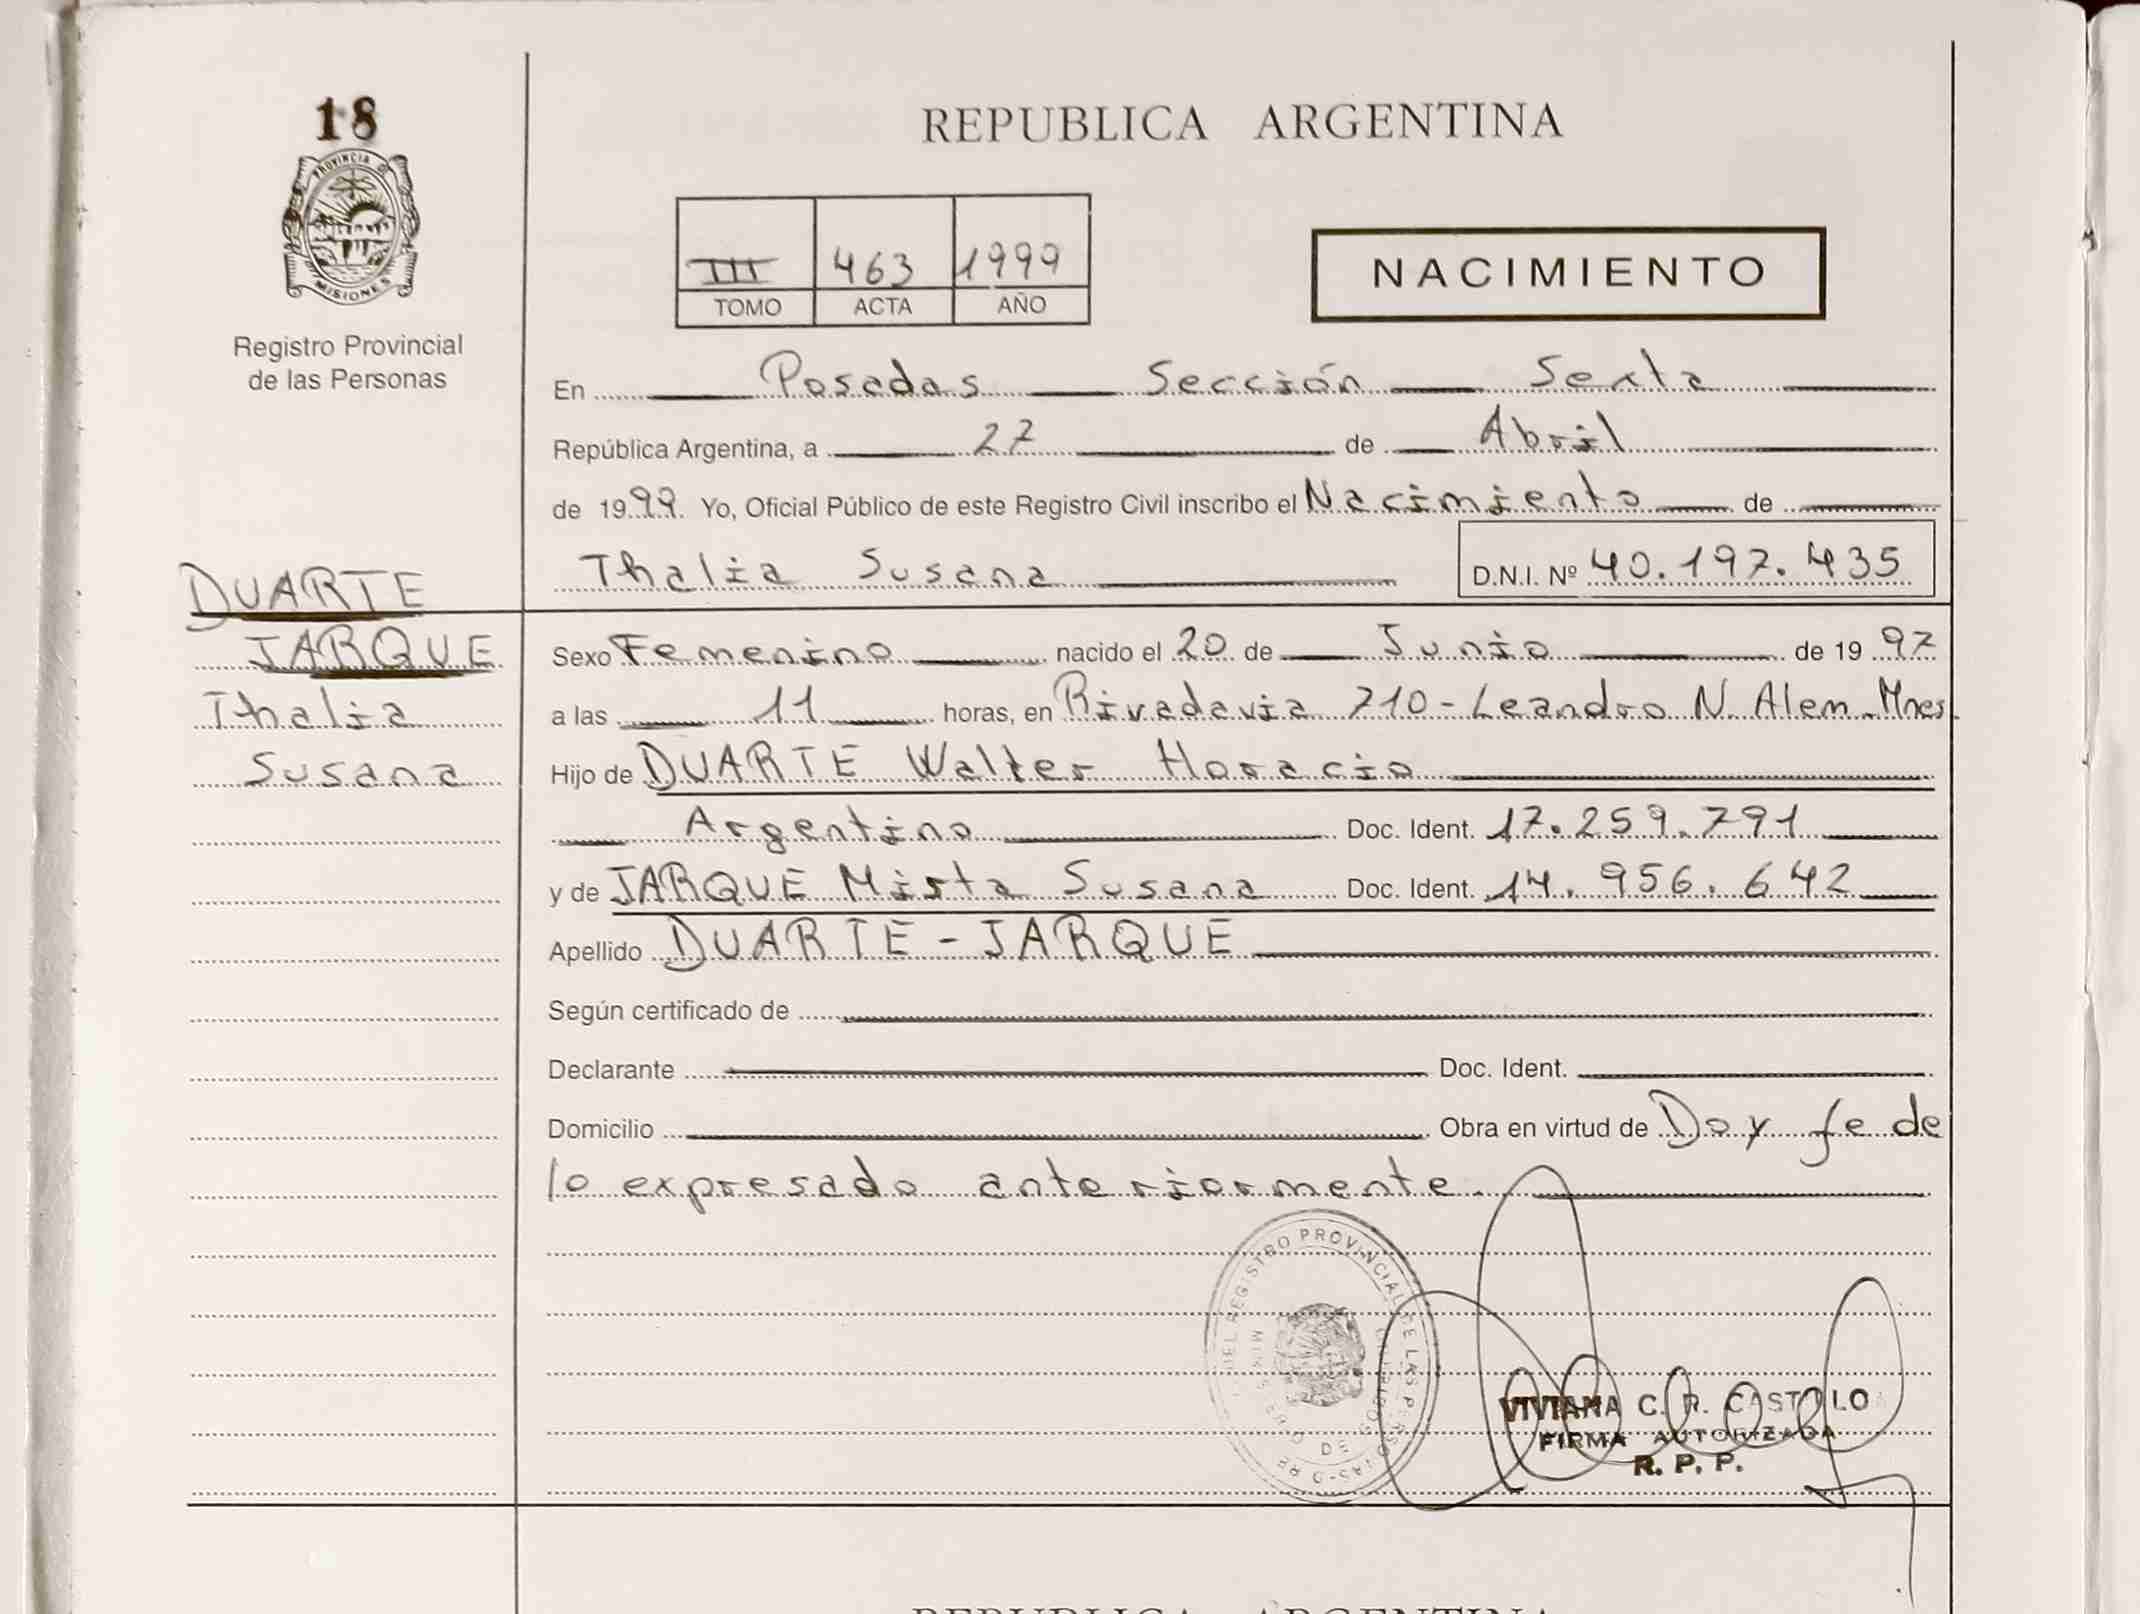 18
PROVINCIA DE
MISIONES
Registro Provincial
de las Personas
REPUBLICA ARGENTINA
III 463 1999
TOMO ACTA AÑO
NACIMIENTO
En Posadas Sección Sexta
República Argentina, a 27 de Abril
de 1999. Yo, Oficial Público de este Registro Civil inscribo el Nacimiento de
Thalia Susana D.N.I. Nº 40.197.435
DUARTE
JARQUE
Thalia
Susana
Sexo Femenino nacido el 20 de Junio de 1997
a las 11 horas, en Rivadavia 710 - Leandro N. Alem - Mnes.
Hijo de DUARTE Walter Horacio
Argentino Doc. Ident. 17.259.791
y de JARQUE Mirta Susana Doc. Ident. 14.956.642
Apellido DUARTE - JARQUE
Según certificado de
Declarante Doc. Ident.
Domicilio Obra en virtud de Doy fe de
lo expresado anteriormente.
DEL REGISTRO PROVINCIAL DE LAS PERSONAS
VIVIANA C. R. CASTILLO
FIRMA AUTORIZADA
R. P. P.
REPUBLICA ARGENTINA